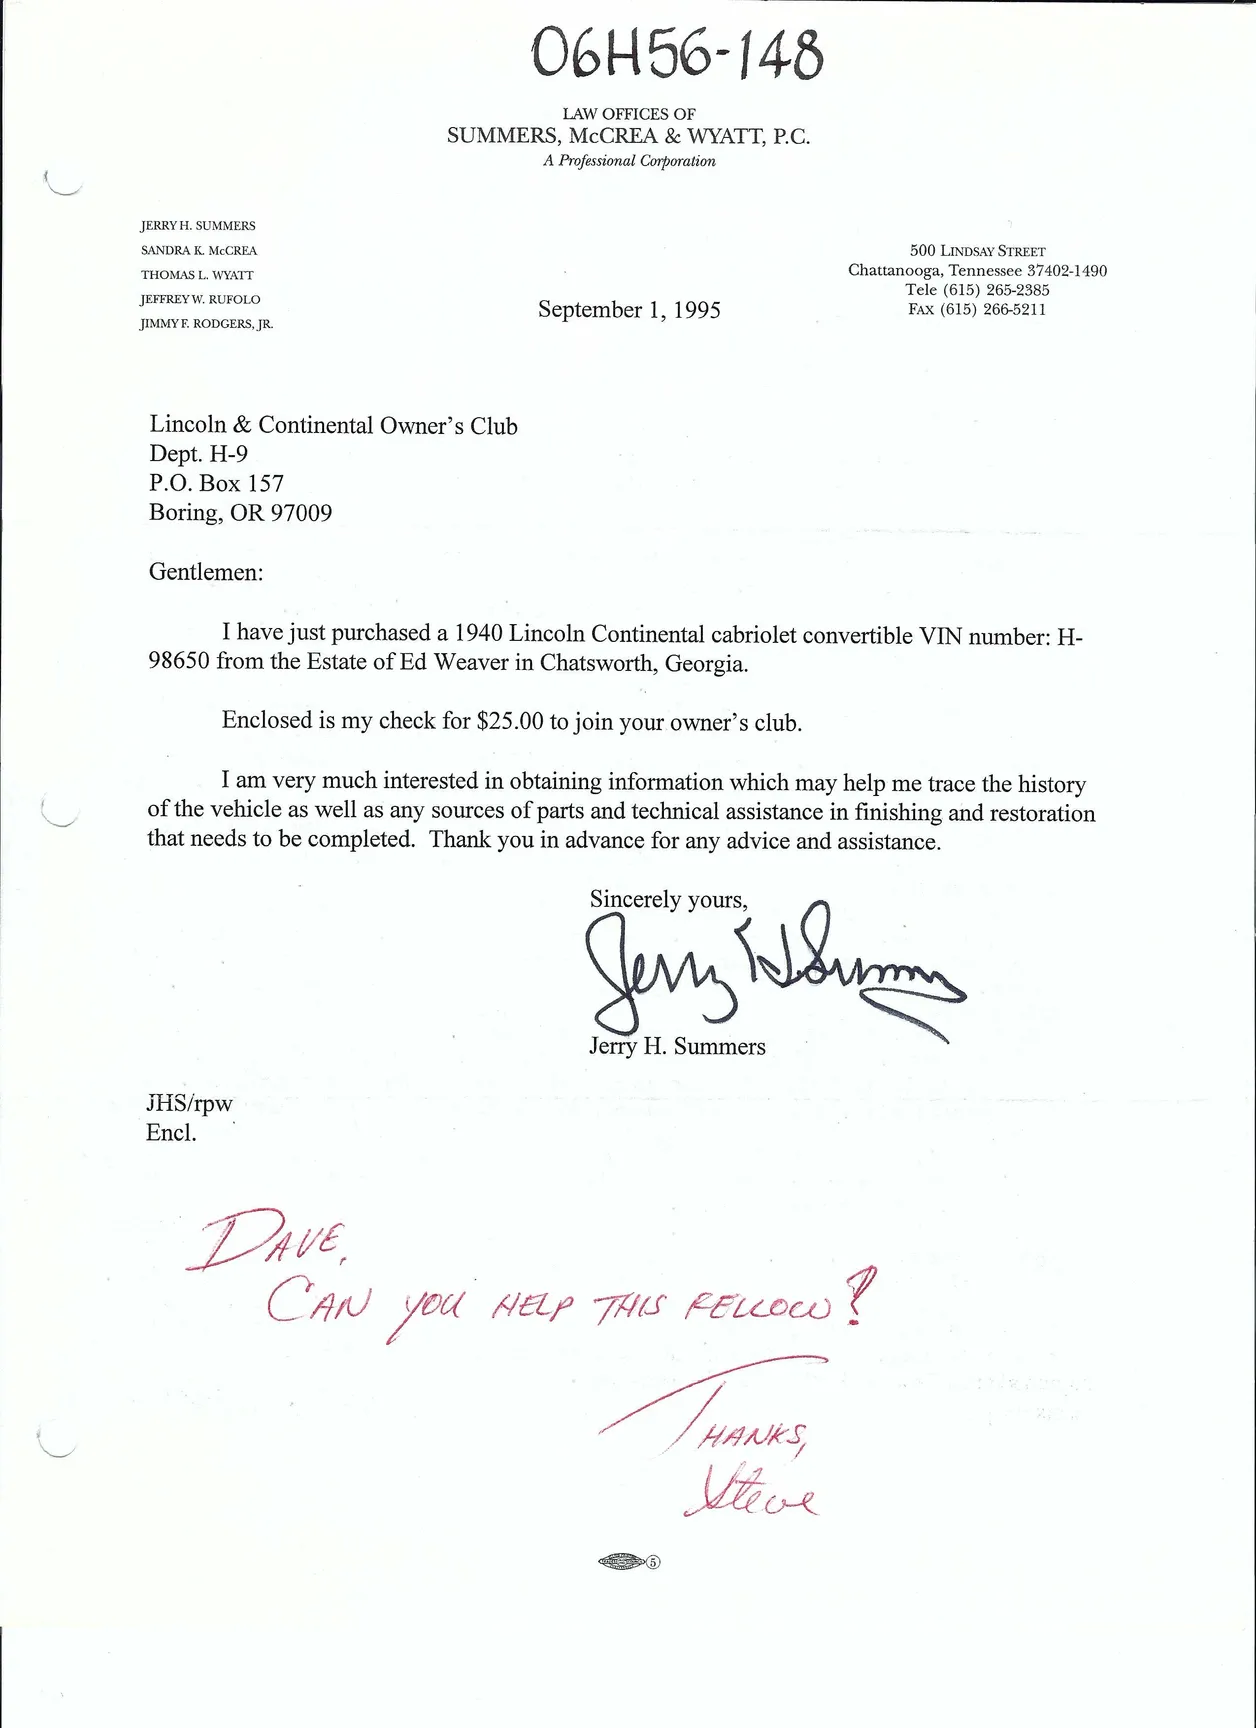 06H56-148
LAW OFFICES OF
SUMMERS, McCREA & WYATT, P.C.
A Professional Corporation
JERRY H. SUMMERS
SANDRA K. McCREA
THOMAS L. WYATT
JEFFREY W. RUFOLO
JIMMY F. RODGERS, JR.
500 LINDSAY STREET
Chattanooga, Tennessee 37402-1490
Tele (615) 265-2385
FAX (615) 266-5211
September 1, 1995
Lincoln & Continental Owner's Club
Dept. H-9
P.O. Box 157
Boring, OR 97009
Gentlemen:
I have just purchased a 1940 Lincoln Continental cabriolet convertible VIN number: H-
98650 from the Estate of Ed Weaver in Chatsworth, Georgia.
Enclosed is my check for $25.00 to join your owner's club.
I am very much interested in obtaining information which may help me trace the history
of the vehicle as well as any sources of parts and technical assistance in finishing and restoration
that needs to be completed.  Thank you in advance for any advice and assistance.
Sincerely yours,
Jerry H. Summers
Jerry H. Summers
JHS/rpw
Encl.
DAVE,
CAN YOU HELP THIS FELLOW?
THANKS,
Steve
5